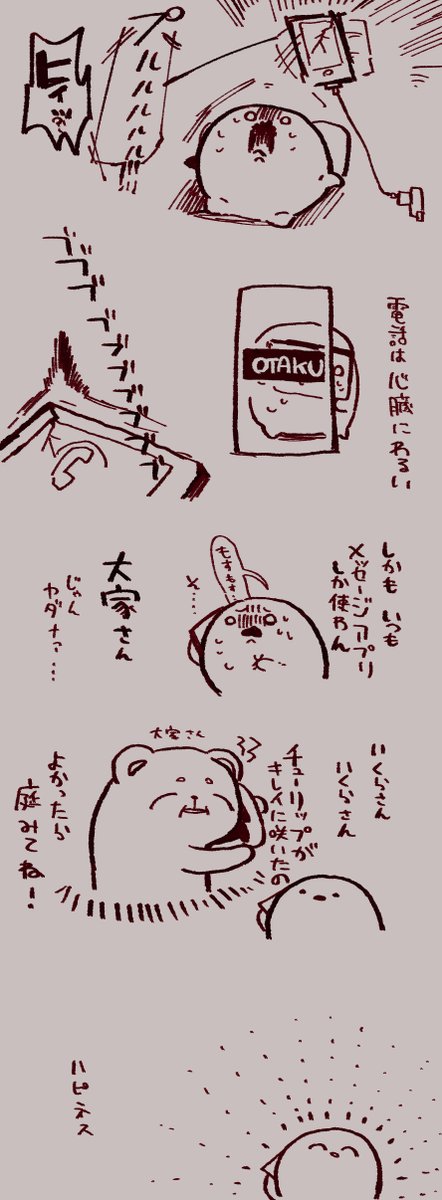 プルルルルル
ヒィッ
電話は心臓にわるい
OTAKU
ブブブブブブブブブ
しかも いつも
メッセージアプリ
しか使わん
もすもす…
大家さん
じゃん
ヤダナァ…
いくらさん
いくらさん
大家さん
チューリップが
キレイに咲いたの
よかったら
庭みてね!
ハピネス